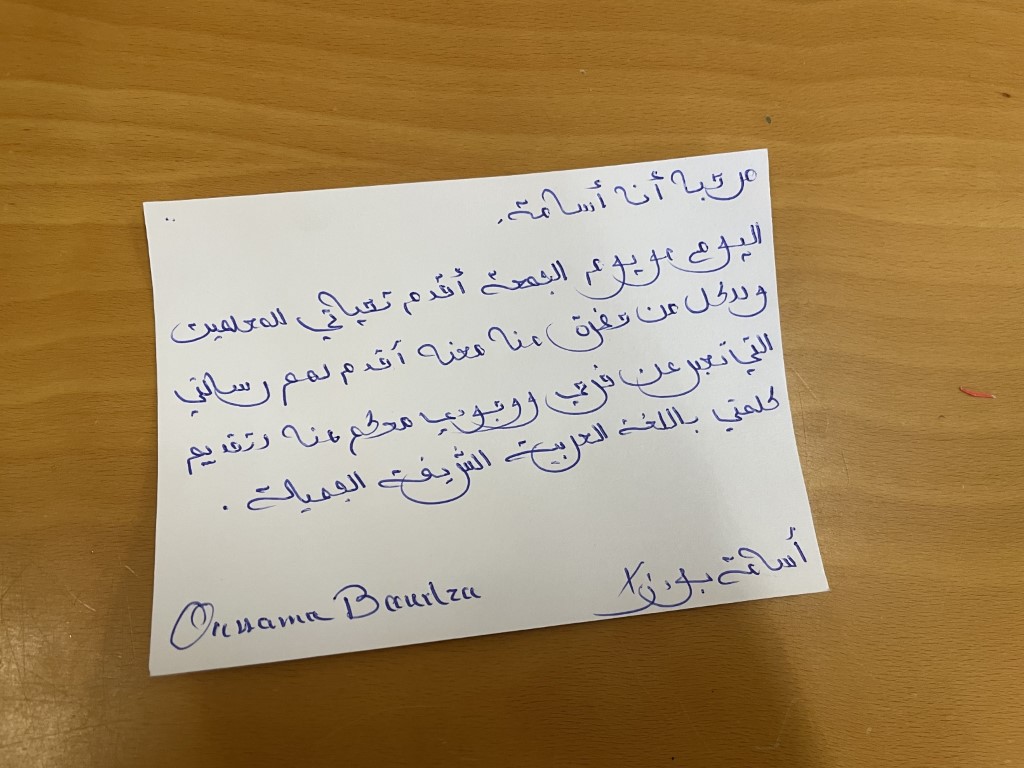 مرحبا أنا أسامة.
اليوم هو يوم الجمعة أقدم تحياتي للمعلمين
ولكل من حضر هنا معنا أقدم لهم رسالتي
التي تعبر عن فرحي ووجودي معكم هنا وتقديم
كلمتي باللغة العربية الشريفة الجميلة .
أسامة
Oussama